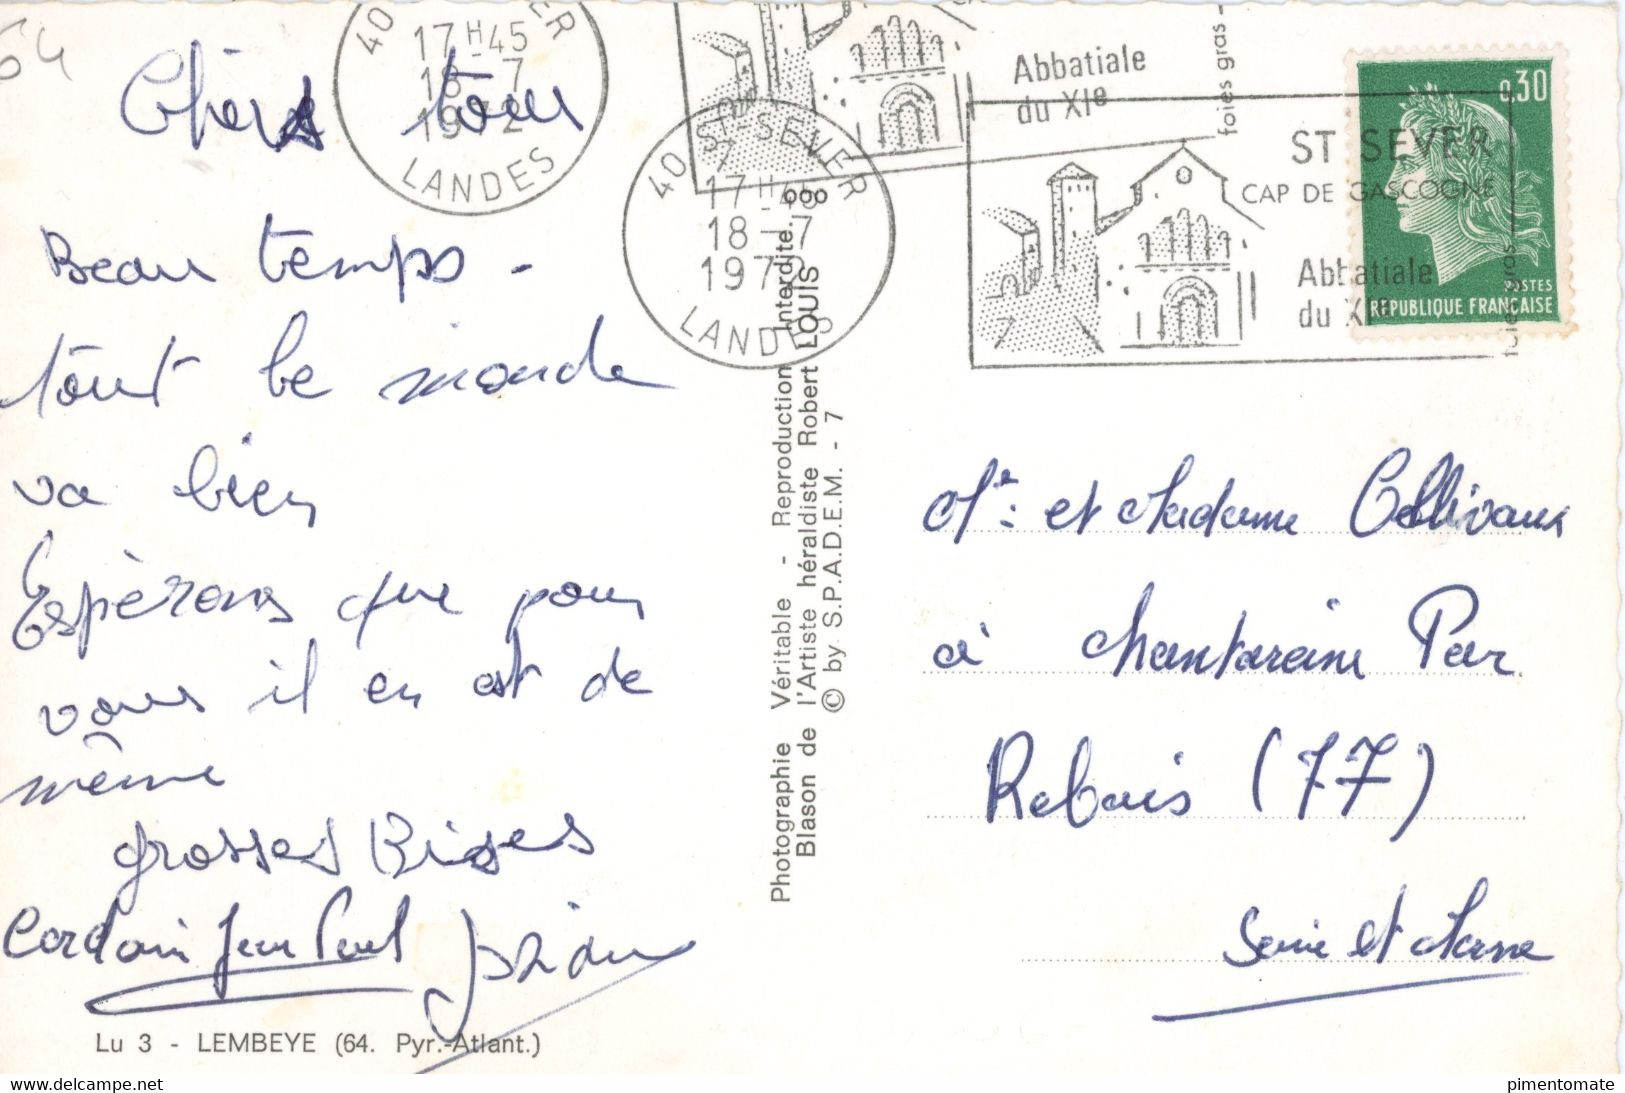 64
Chers tous
Beau temps -
tout le monde
va bien
Espèrons que pour
vous il en est de
même
grosses Bises
Jean Paul
Lu 3 - LEMBEYE (64. Pyr.-Atlant.)
40 ST-SEVER
17 H 45
18 - 7
1972
LANDES
Abbatiale
du XIe
foies gras -
40 ST-SEVER
17 H 45
18 - 7
1972
LANDES
ST SEVER
CAP DE GASCOGNE
Abbatiale
du XIe
foies gras
0,30
POSTES
REPUBLIQUE FRANÇAISE
Photographie Véritable - Reproduction Interdite.
Blason de l'Artiste héraldiste Robert LOUIS
© by S.P.A.D.E.M. - 7
Mr et Madame
à Chantareine Par
Rebais (77)
Seine et Marne
pimentomate